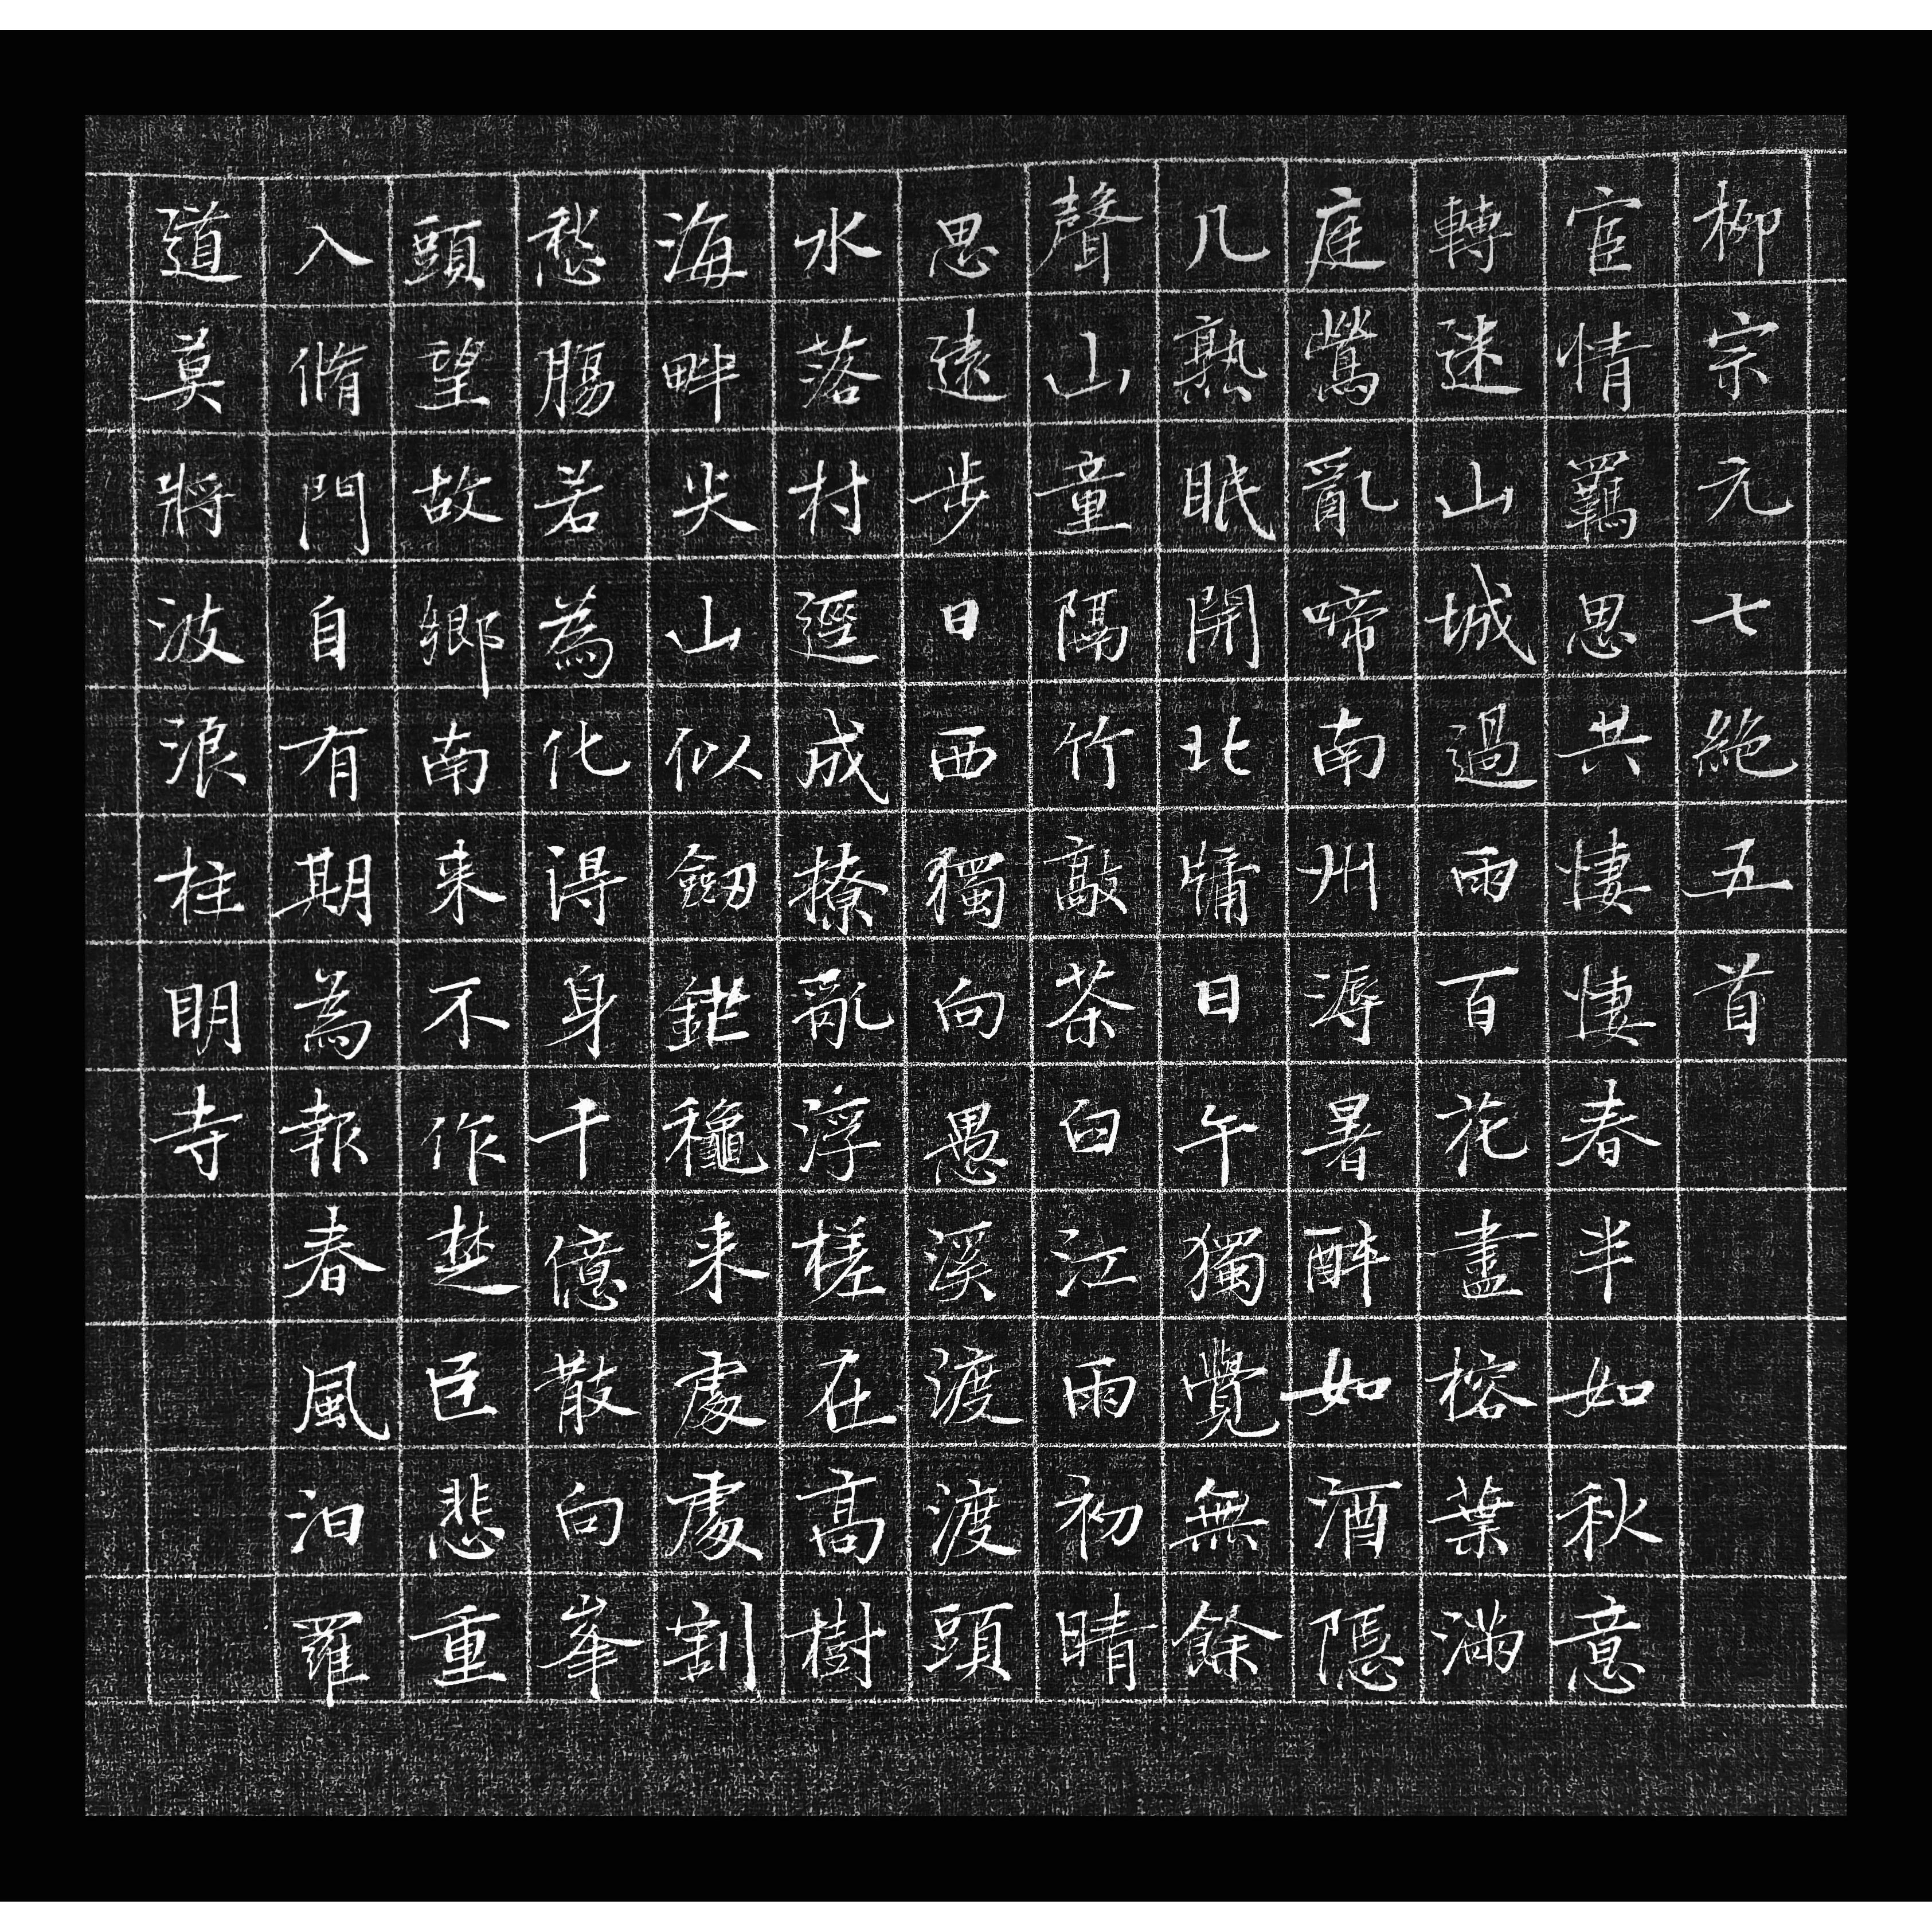 柳宗元七絶五首
宦情羈思共悽悽春半如秋意
轉迷山城過雨百花盡榕葉滿
庭鶯亂啼南州溽暑醉如酒隱
几熟眠開北牖日午獨覺無餘
聲山童隔竹敲茶臼江雨初晴
思遠步日西獨向愚溪渡渡頭
水落村逕成撩亂浮槎在高樹
海畔尖山似劒鋩穐来處處割
愁腸若為化得身千億散向峯
頭望故鄉南来不作楚臣悲重
入脩門自有期為報春風汨羅
道莫將波浪柱明寺